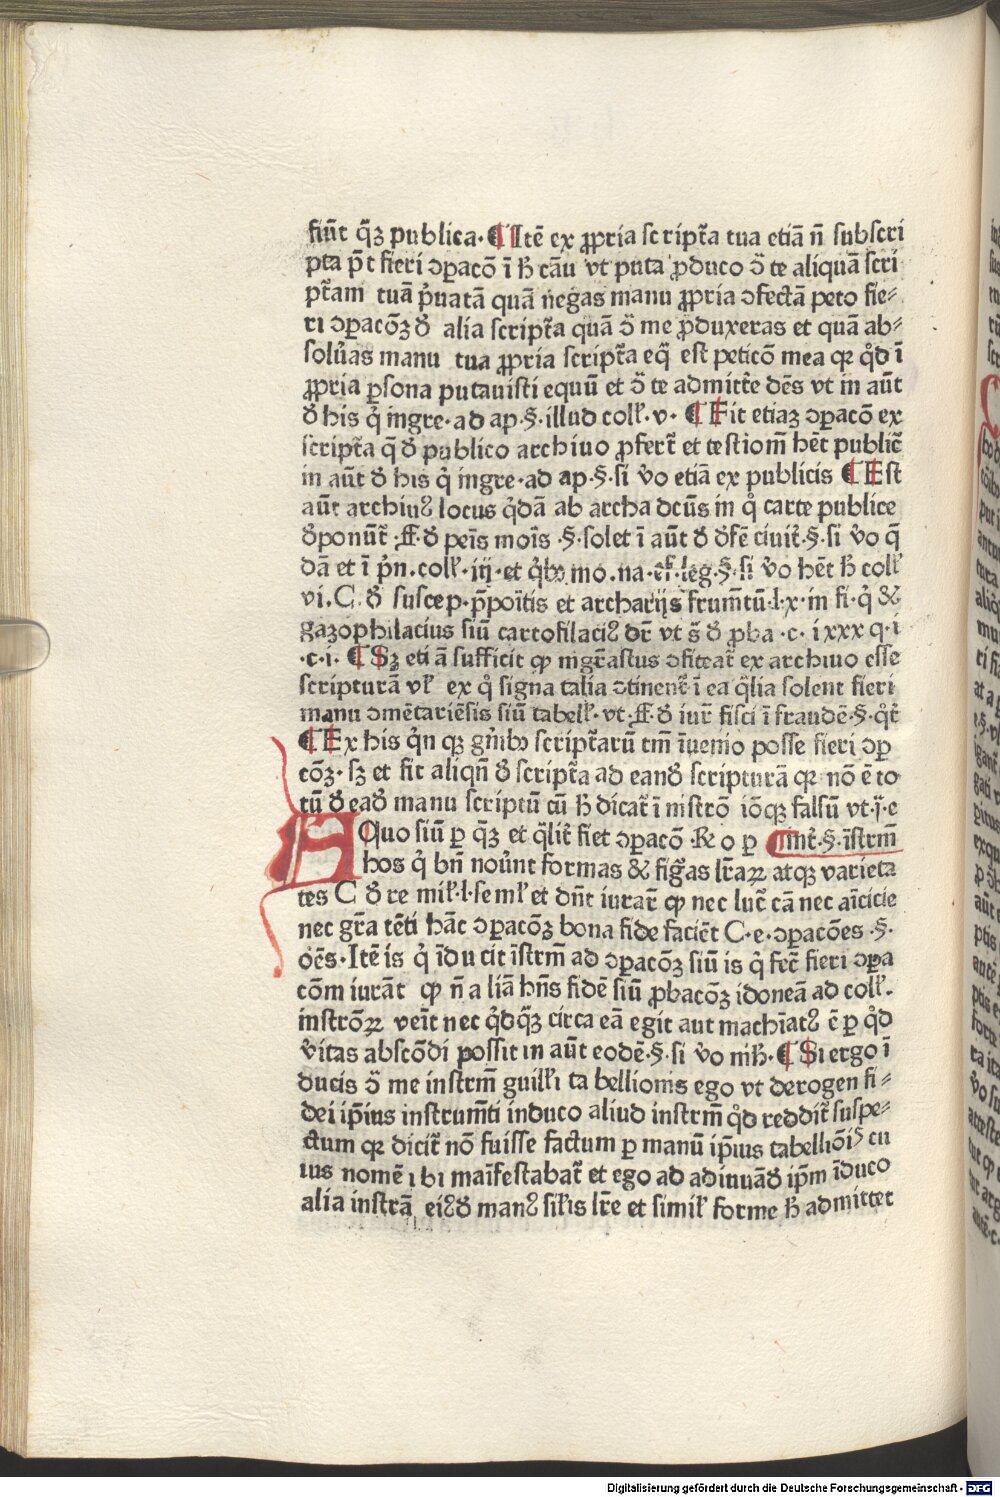 fiūt q̄ꝫ publica· ¶ Itē ex ꝓpria script̄a tua etiā n̄ subscri
pta p̄t fieri ↄꝑacō ī h̄ cāu vt puta ꝓduco ↄ̄ te aliquā scri
pt̄am tuā p̓uatā quā negas manu ꝓpria ↄfectā peto fie⸗
ri ↄꝑacōꝫ đ alia script̄a quā ↄ̄ me ꝓduxeras et quā ab⸗
solu̓as manu tua ꝓpria script̄a eq̄ est peticō mea qꝛ qđ ī
ꝓpria ꝑsona putauisti equū et ↄ̄ te admitt̄e dēs vt in aūt
đ his q̓ ingre· ad ap·§· illud coll̓· v· ¶ Fit etiaꝫ ↄꝑacō ex
script̄a q̄ đ publico archiuo ꝓfert̄ et testiom̄ hēt public̄
in aūt đ his q̓ ingre· ad ap·§· si v̓o etiā ex publicis ¶ Est
aūt archiuꝰ locus qđā ab archa dcūs in q̓ carte publice
đponūt̄· ff· đ peīs moīs ·§· solet ī aūt đ đfē ciuit̄·§· si v̓o q̄
dā et ī p̓n· coll̓· iij· et q̓bꝫ mo· na· ef̓· leg·§· si v̓o hēt h̄ coll̓
vi· C· đ suscep· p̄poītis et archarijs frumētū· l· x· in fi· q̓ &
gazophilacius siū cartofilaciꝰ dr̄ vt s̄ đ ꝓba ·c· ixxx q· i
·c· i· ¶ Sꝫ eti ā sufficit ꝙ mgr̄astus ↄfiteat̄ ex archiuo esse
scripturā vl̓ ex q̓ signa talia ↄtinent̄ ī ea q̄lia solent fieri
manu ↄmētariēsis siū tabell̓· vt· ff· đ iur̄ fisci ī fraudē·§· q̓t̄
¶ Ex his q̓n qꝫ gn̓ibꝫ script̄arū tm̄ īuenio posse fieri ↄꝑ
cōꝫ· sꝫ et fit aliqn̄ đ script̄a ad eanđ scripturā qꝛ nō ē to
tū đ eađ manu scriptū cū h̄ dicat̄ ī nistrō iōqꝫ falsū vt· j̄· e
A Quo siū ꝑ q̄ꝫ et q̄lit̄ fiet ↄꝑacō ·℞ o ꝑ ¶ int̄·§· īstrm̄
hos q̓ bn̄ nou̓nt formas & figas lr̄aꝝ atqꝫ varieta
tes C đ re mil̓· l· sem̓l et dn̄t iurar̄ ꝙ nec luc̄ cā nec aīcicie
nec gr̄a tēti hāc ↄꝑacōꝫ bona fide faciēt C· e· ↄꝑacōes ·§·
ōēs· Itē is q̓ īducit īstrm̄ ad ↄꝑacōꝫ siū is q̓ fec̄ fieri ↄꝑa
cōm iurāt ꝙ n̄ aliā hn̄s fidē siū ꝓbacōꝫ idoneā ad coll̓·
instrōꝝ veīt nec q̓dq̄ꝫ circa eā egit aut machīatꝰ ē ꝑ qđ
v̓itas abscōdi possit in aūt eodē·§· si v̓o nih̄· ¶ Si ergo ī
ducis ↄ̄ me instrm̄ guill̓i tabellionis ego vt derogen fi⸗
dei ip̄ius instrumēti induco aliud instrm̄ qđ reddit̄ suspe⸗
ctum qꝛ dicit̄ nō fuisse factum ꝑ manū ip̄ius tabelliōīs cu
ius nomē ibi maīfestabat̄ et ego ad adiuuāđ ip̄m īduco
alia instrā eiꝰđ manꝰ sil̓is lr̄e et simil̓ forme h̄ admittet
Digitalisierung gefördert durch die Deutsche Forschungsgemeinschaft - DFG